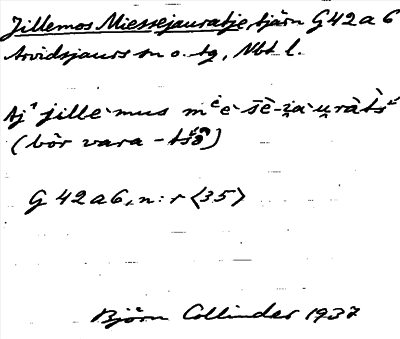 Jillemos Miessejauratje, tjärn G 42 a 6
Arvidsjaurs sn o. tg, Nbt l.
Aj¹ jille·mus
(bör vara
G 42 a 6, n:r <35>
Björn Collinder 1937